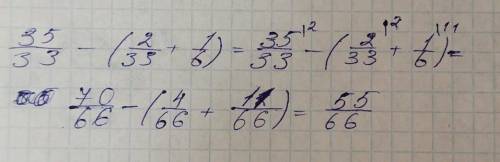 35/33 - (2/33 + 1/6) = 35/33 |2 - (2/33 |2 + 1/6 |11) =
70/66 - (4/66 + 11/66) = 55/66